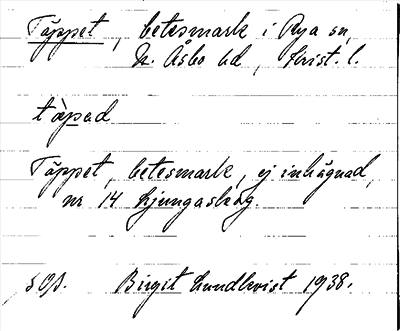 Täppet, betesmark i Rya sn,
N. Åsbo hd, Krist. l.
tàpad
Täppet, betesmark, ej inhägnad,
nr 14 Ljungaskog.
Birgit Lundkvist 1938.